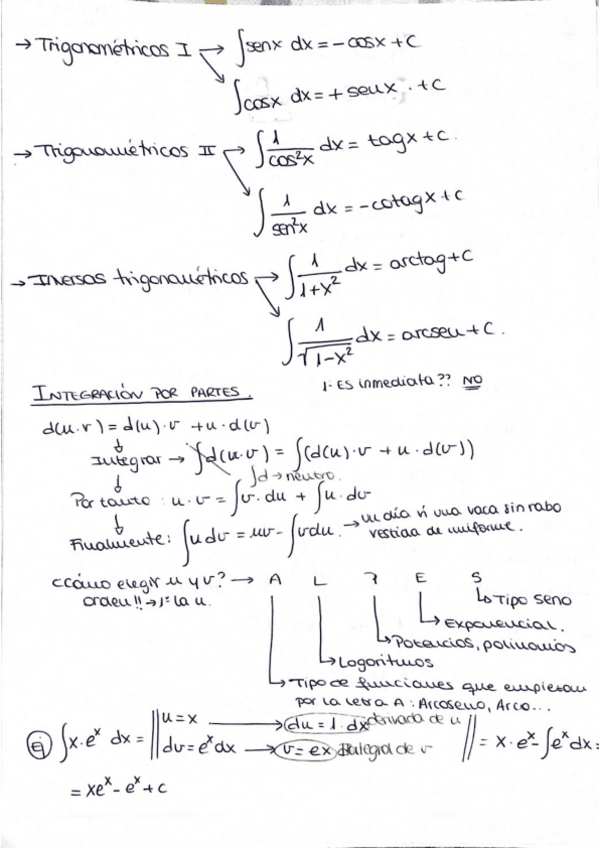 → Trigonométricos I → ∫senx dx = -cosx + C
∫cosx dx = + senx + C
→ Trigonométricos II → ∫ 1/cos²x dx = tagx + C.
∫ 1/sen²x dx = -cotagx + C
→ Inversos trigonométricos → ∫ 1/1+x² dx = arctag + C
∫ 1/√1-x² dx = arcsen + C.
INTEGRACIÓN POR PARTES.
1· Es inmediata?? NO
d(u·v) = d(u)·v + u·d(v)
↓
Integrar → ∫d(u·v) = ∫(d(u)·v + u·d(v))
↓ ∫d → neutro.
Por tanto: u·v = ∫v·du + ∫u·dv
↓
Finalmente: ∫u dv = uv - ∫vdu. → un día vi una vaca sin rabo
vestida de uniforme.
¿Cómo elegir u y v? → A L P E S
orden!! → 1º la u.
↳ Tipo seno
↳ Exponencial.
↳ Potencias, polinomios
↳ Logaritmos
↳ Tipo de funciones que empiezan
por la letra A: Arcoseno, Arco...
Ej ∫x·eˣ dx = || u = x → du = 1·dx derivada de u || = x·eˣ - ∫eˣdx =
dv = eˣdx → v = ex integral de v
= xeˣ - eˣ + C